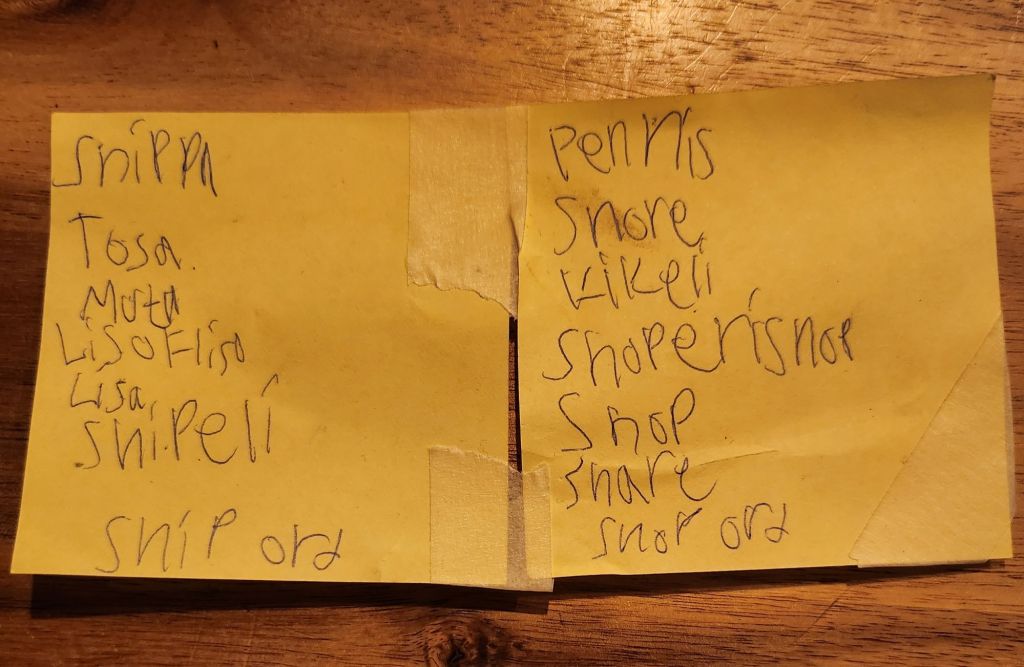 snippa
Tosa.
Muta
Liso Fliso
Lisa,
snipeli
snip ord
pennis
snore
kikeli
snoperisnop
snop
snare
snop ord